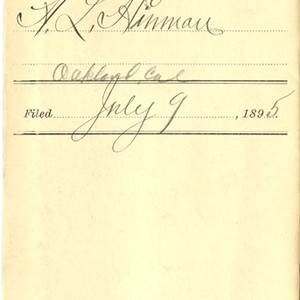 H. L. Hinman
Oakland, Cal
Filed July 9, 1895.